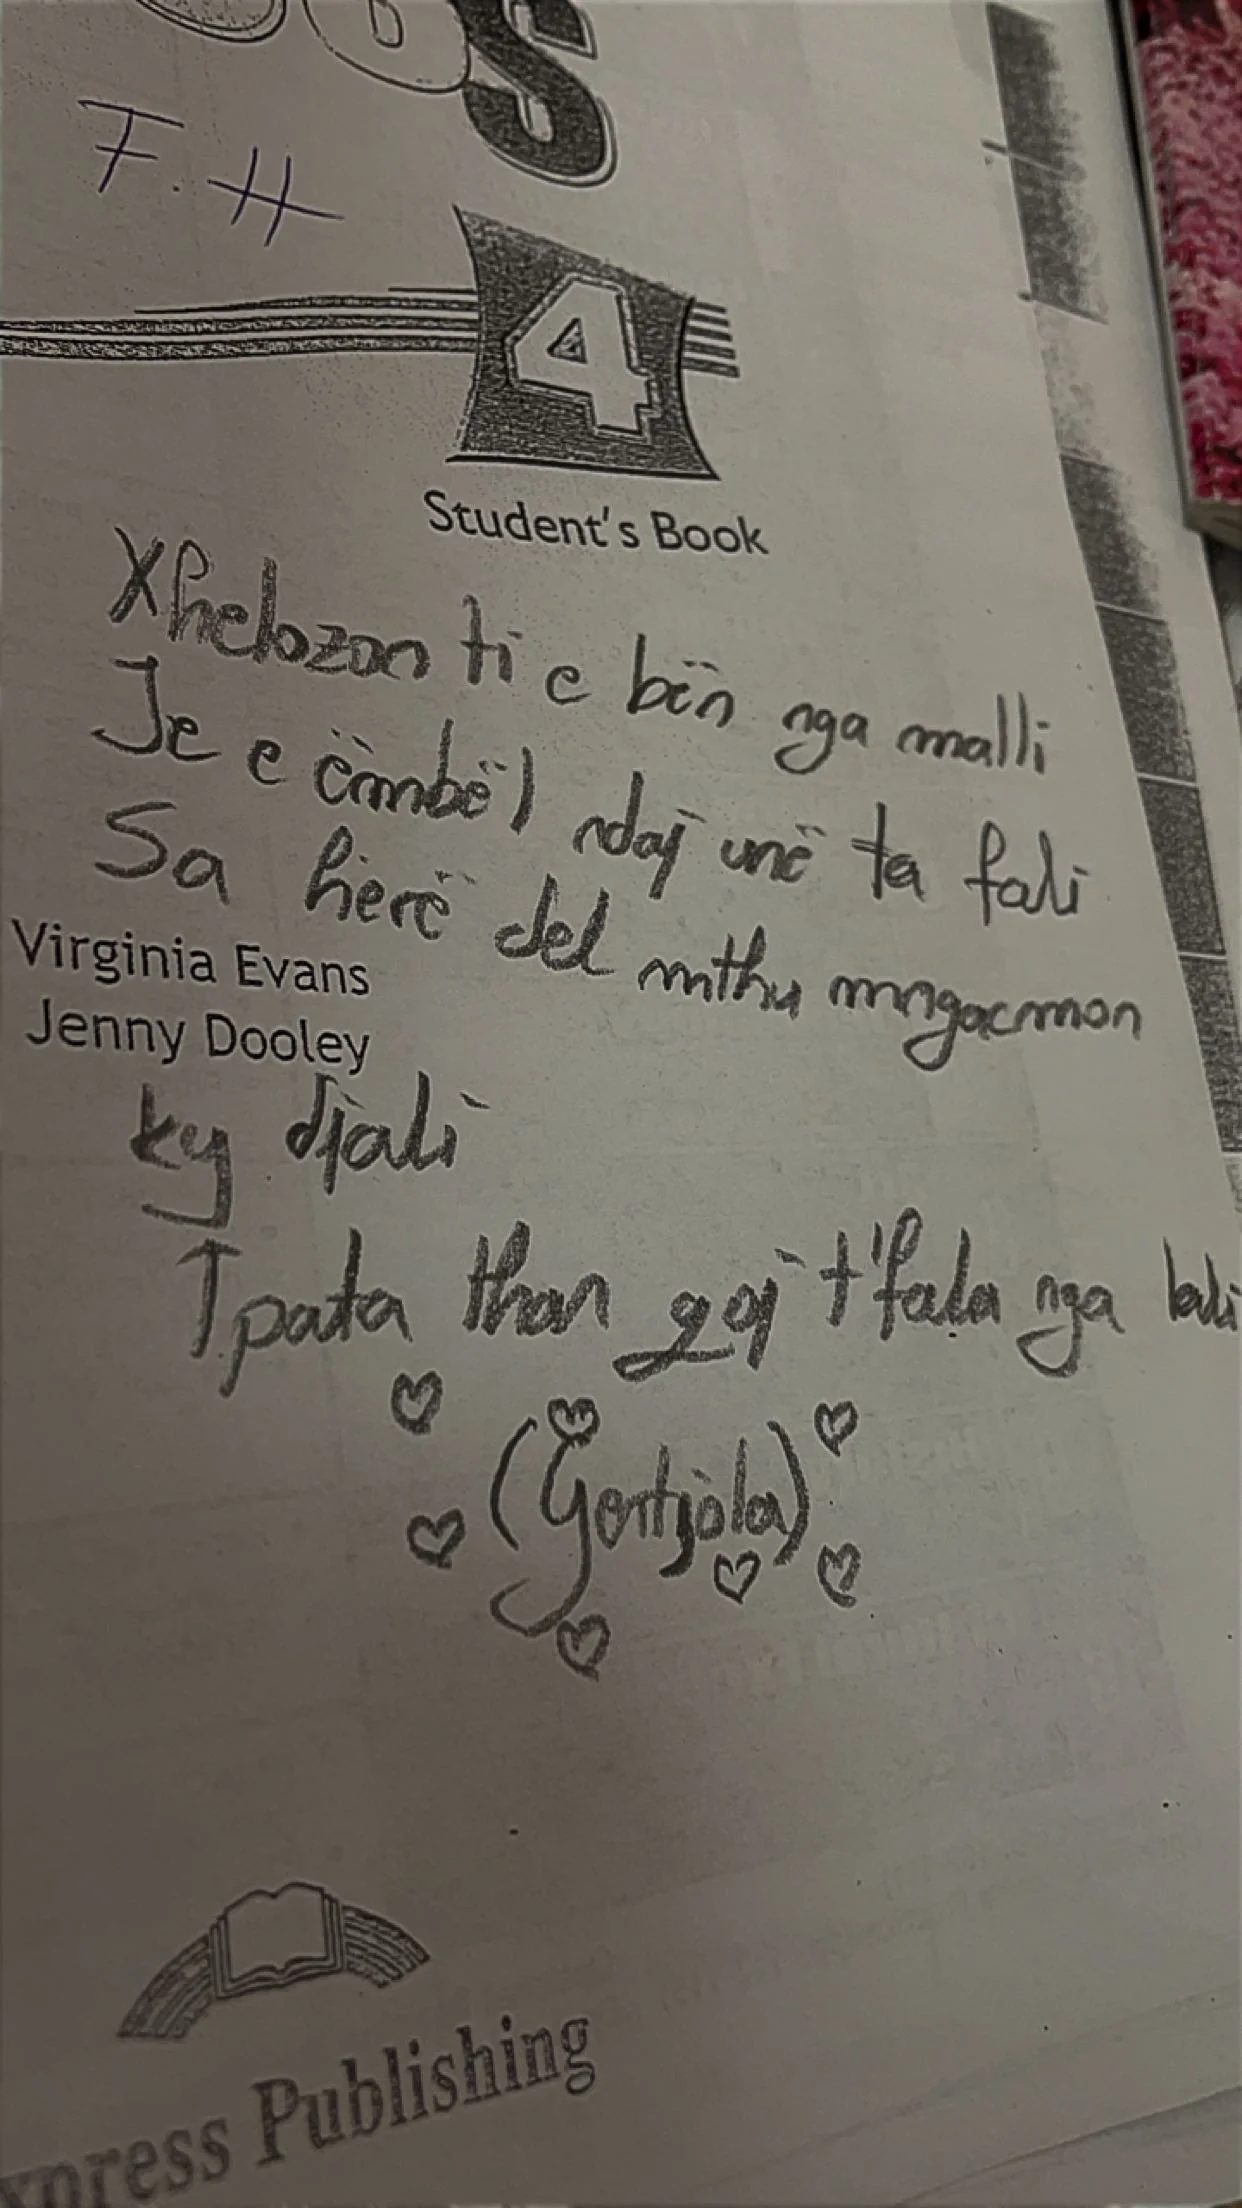 S
F.H
4
Student's Book
Xhelozon ti e bën nga malli
Je e ëmbël ndaj unë ta fali
Sa herë del mthu mngacmon
Virginia Evans
Jenny Dooley
ky djali
I pata than goj t'fala nga lali
(Gertjola)
xpress Publishing